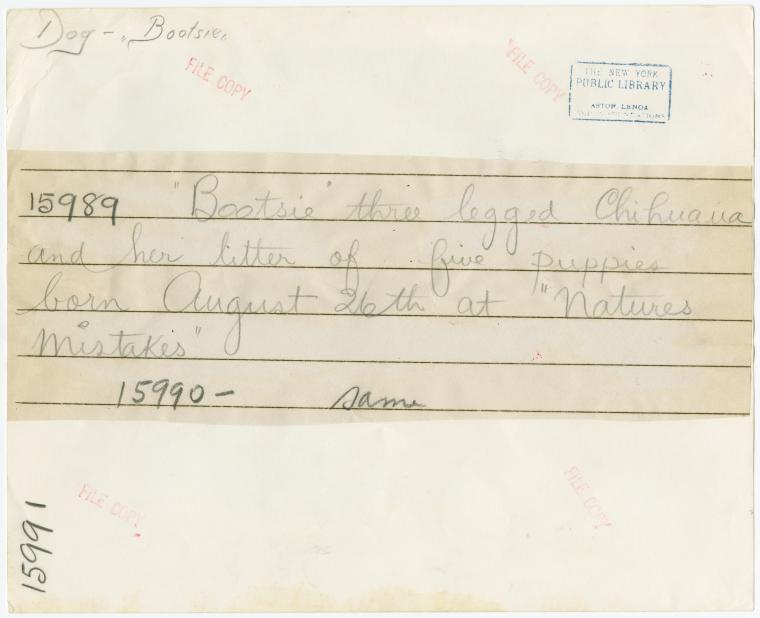 Dog - "Bootsie"
FILE COPY
FILE COPY
THE NEW YORK
PUBLIC LIBRARY
ASTOR LENOX
15989 "Bootsie" three legged Chihuaua
and her litter of five puppies
born August 26th at "Natures
Mistakes"
15990- same
FILE COPY
FILE COPY
15991